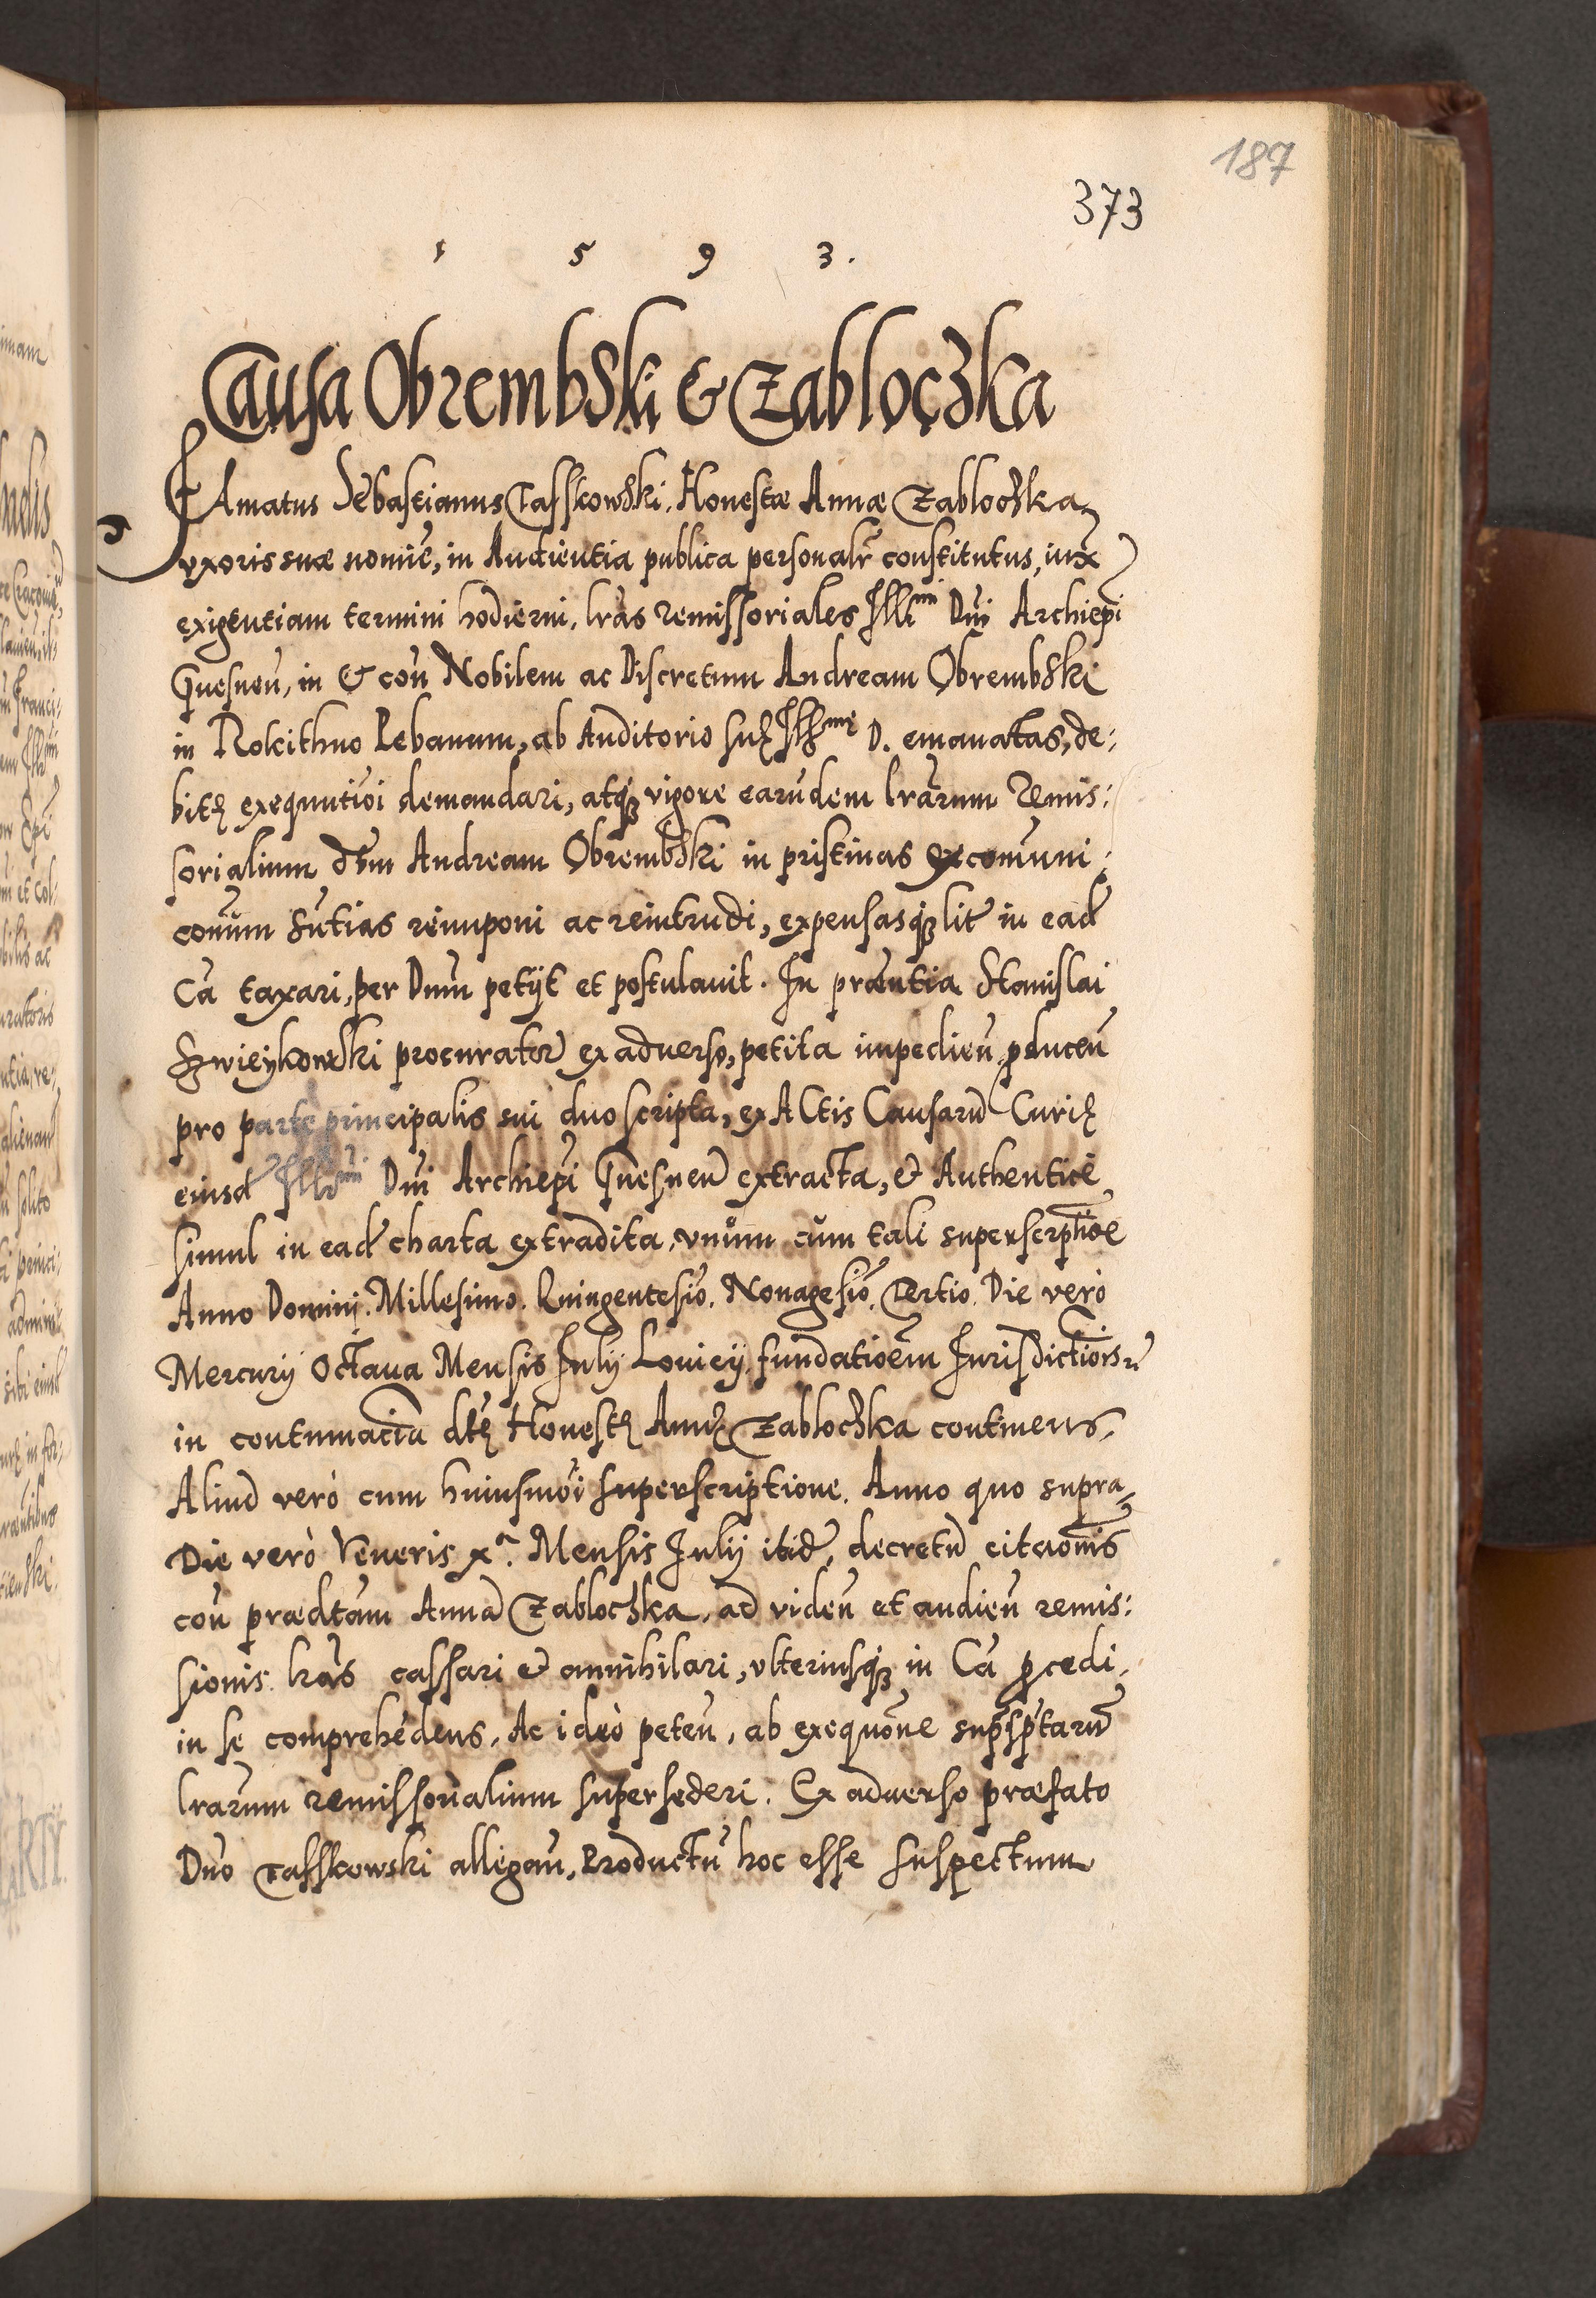 187
373
1 5 9 3.
Causa Obrembski & Zabloczka
Famatus Sebastianus Tasskowski, Honestæ Annæ Zabloczka,
vxoris suæ nomīe, in Audientia publica personalr̄ constitutus, iux
exigentiam termini hodierni, lr̄as remissoriales Illmi Dni Archiepi
Gnesneñ, in & coñ Nobilem ac Discretum Andream Obrembski
in Rokithno Plebanum, ab Auditorio suę Illmę D. emanatas, de:
bitę exequutioi demandari, atq̃ꝫ vigore earundem lr̄arum Remis:
sorialium dt̄m Andream Obrembski in pristinas excom̄uni:
conūm sn̄tias reimponi ac reintrudi, expensasq̃ꝫ lit̄ in ead̄
Cā taxari, per Dnum petijt et postulauit. In præn̄tia Stanislai
Szwieykowski procurator̄ ex aduerso, petita impedieñ, ꝓduceñ
pro parte principalis sui duo scripta, ex Actis Causarū Curię
eiusd̄ Illmi Dni Archiepi Gnesneñ extracta, & Authenticè
simul in ead̄ charta extradita, vnum cum tali superscrptiōe
Anno Domini. Millesimo. Quingentesīo. Nonagesīo. Tertio. Die verò
Mercurij Octaua Mensis Iulij Louicij, fundatioēm Iurisdictiōis
in contumaciā dt̄ę Honestę Annę Zabloczka continens,
Aliud verò cum huiusmōi superscriptione. Anno quo supra,
Die verò Veneris xa. Mensis Iulij ibid̄, decretū citaōnis
coñ prædt̄am Annā Zabloczka, ad videñ et audieñ remis:
sionis lr̄as cassari & annihilari, vlteriusq̃ꝫ in Cā ꝓcedi,
in se comprehēdens, Ac ideò peteñ, ab exequōne supr̄sp̄tarū
lr̄arum remissorialium supersederi. Ex aduerso præfato
Dno Tasskowski allegañ, Productū hoc esse suspectum